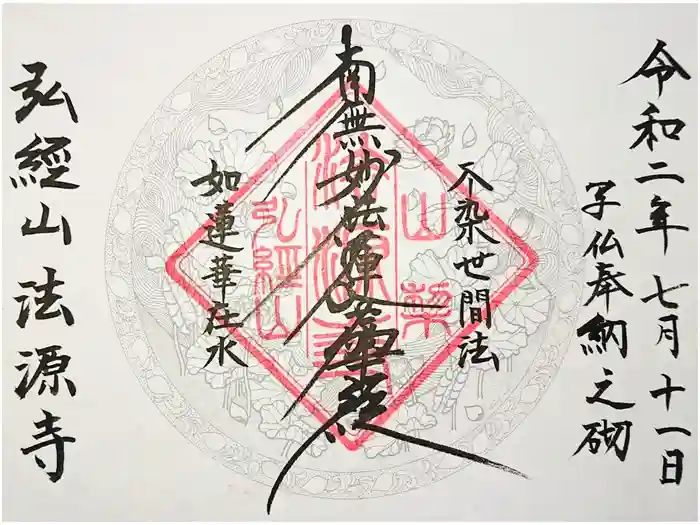 令和二年七月十一日
写仏奉納之砌
不染世間法
南無妙法蓮華經
如蓮華在水
弘經山
法源寺
弘經山法源寺